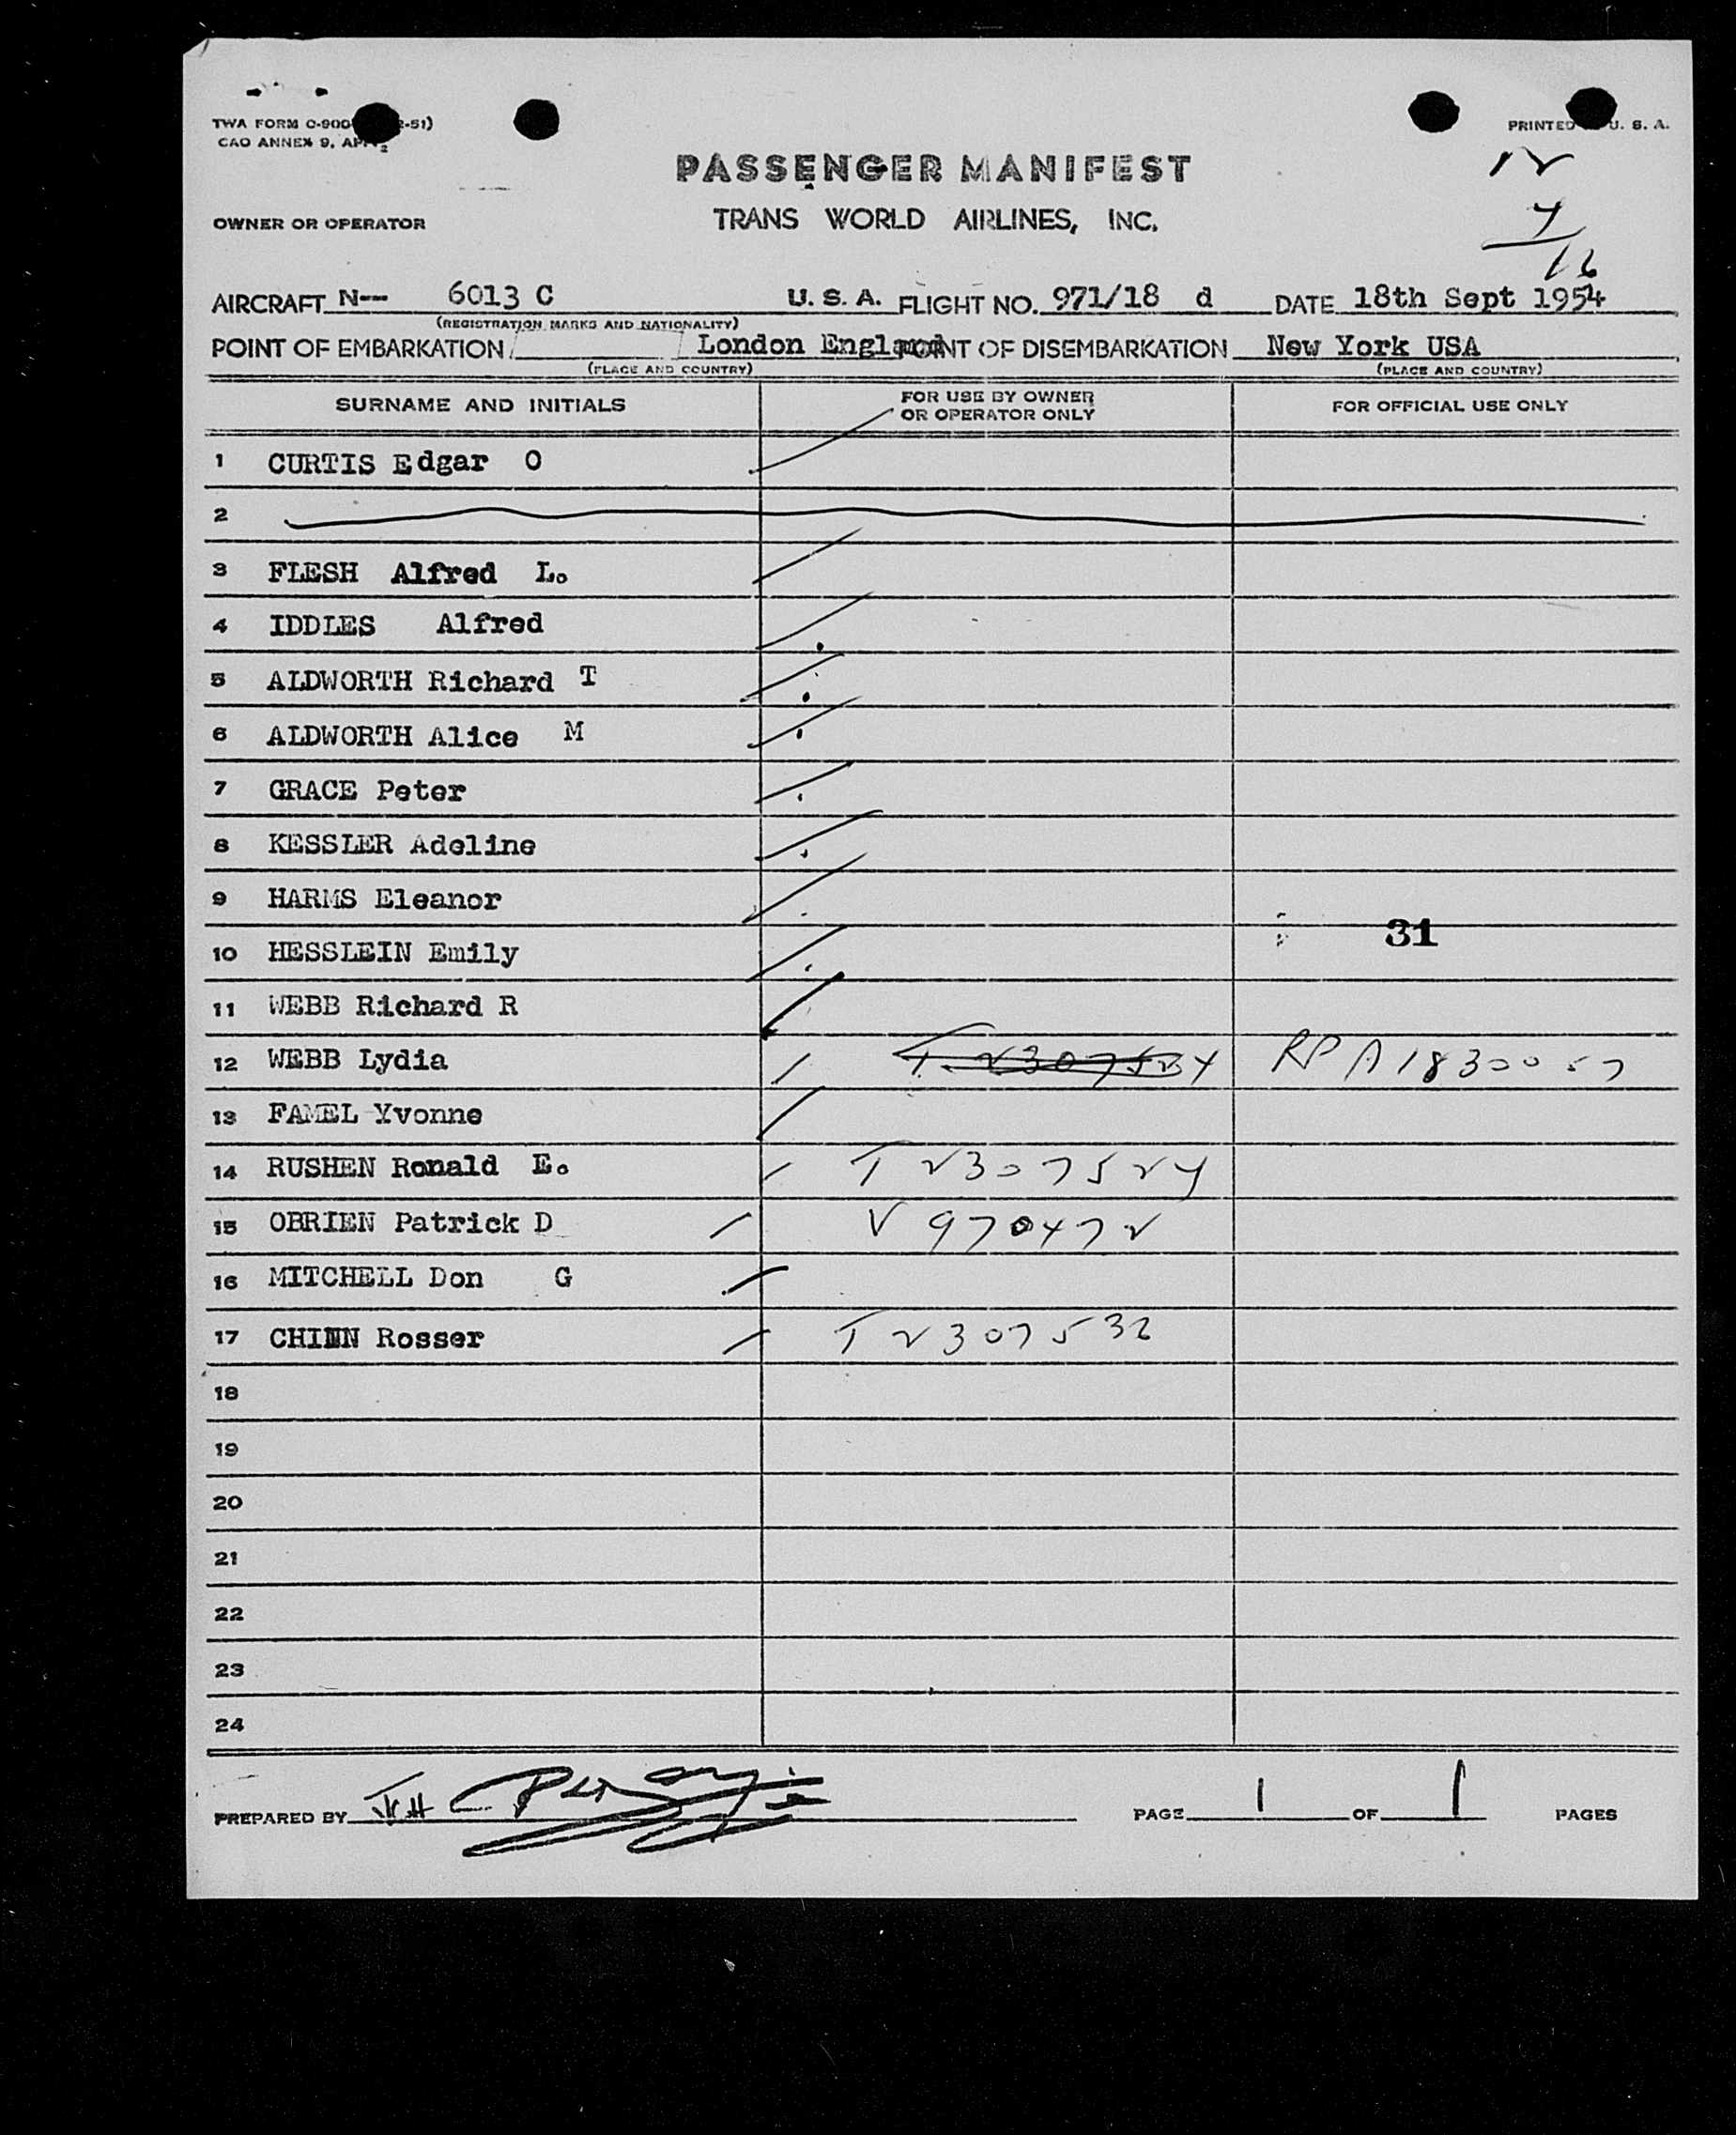 TWA FORM O-900 2-51)
CAO ANNEX 9, APP. 2
PRINTED U. S. A.
PASSENGER MANIFEST
OWNER OR OPERATOR
TRANS WORLD AIRLINES, INC.
12
4
16
AIRCRAFT N-- 6013 C U. S. A. FLIGHT NO. 971/18 d DATE 18th Sept 1954
(REGISTRATION MARKS AND NATIONALITY)
POINT OF EMBARKATION London England POINT OF DISEMBARKATION New York USA
(PLACE AND COUNTRY) (PLACE AND COUNTRY)
SURNAME AND INITIALS FOR USE BY OWNER OR OPERATOR ONLY FOR OFFICIAL USE ONLY
1 CURTIS Edgar O
2
3 FLESH Alfred L.
4 IDDLES Alfred
5 ALDWORTH Richard T
6 ALDWORTH Alice M
7 GRACE Peter
8 KESSLER Adeline
9 HARMS Eleanor
31
10 HESSLEIN Emily
11 WEBB Richard R
12 WEBB Lydia T 2307524 RP A1830057
13 FAMEL Yvonne
14 RUSHEN Ronald E. T 2307524
15 OBRIEN Patrick D V 970472
16 MITCHELL Don G
17 CHINN Rosser T 2307532
18
19
20
21
22
23
24
PREPARED BY PAGE 1 OF 1 PAGES